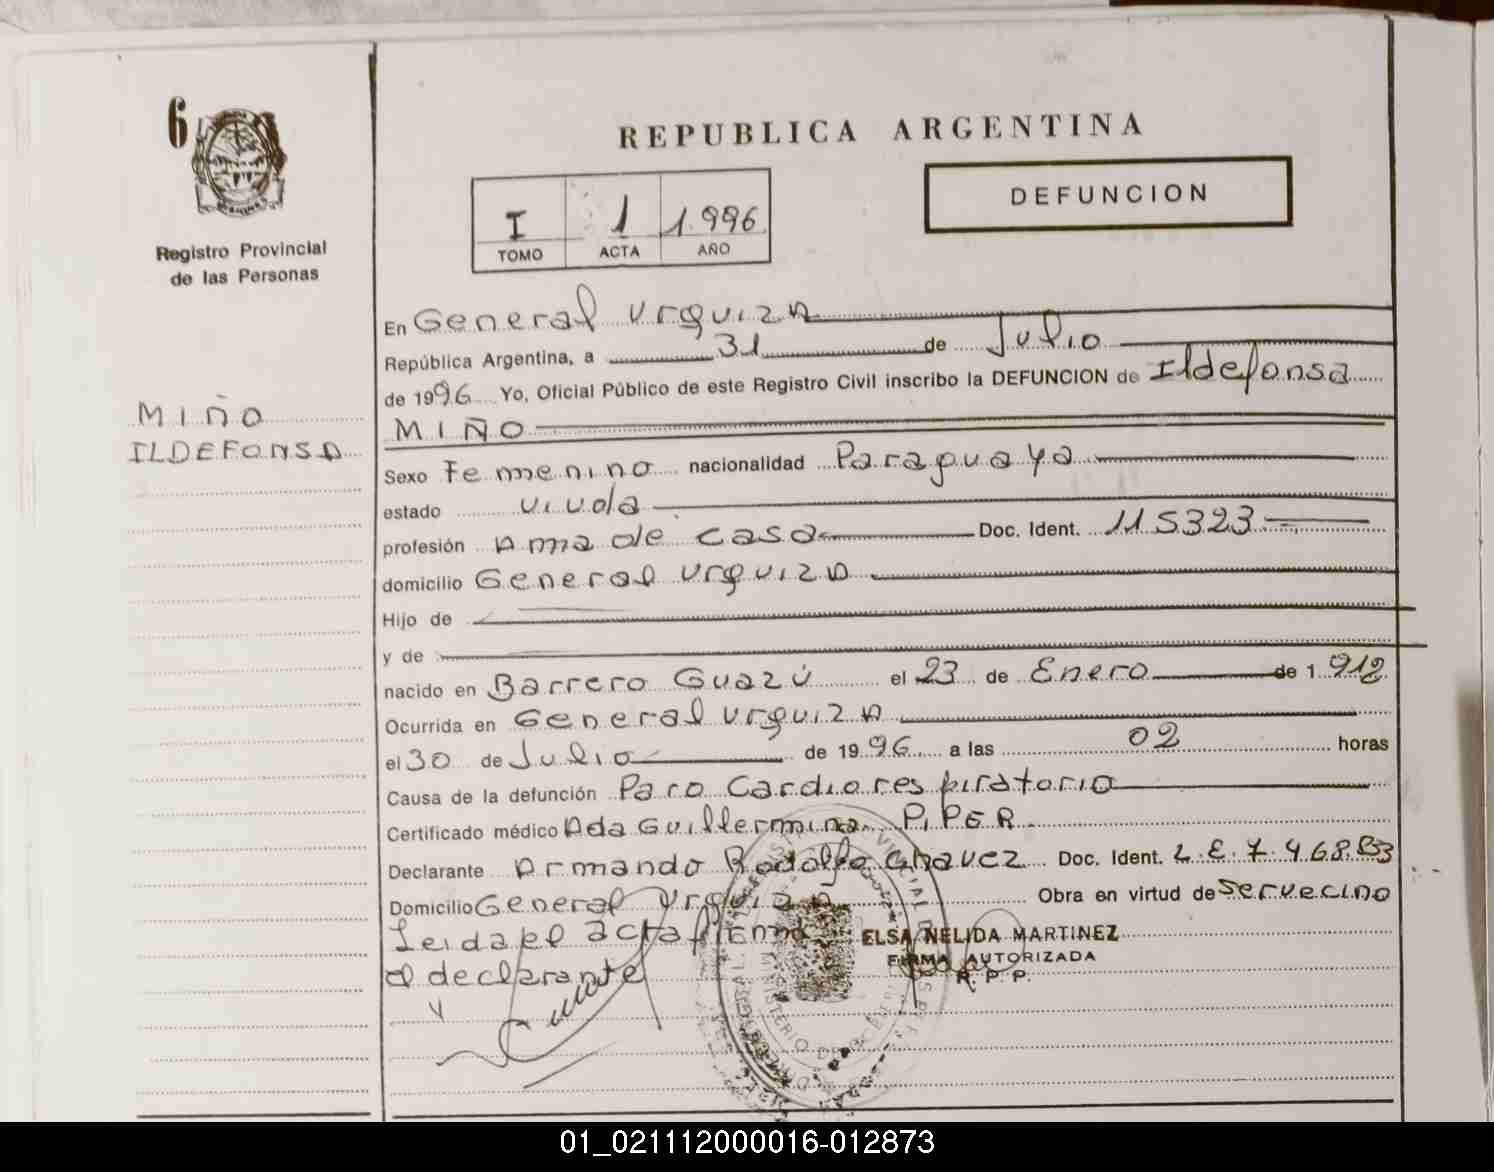 6
Registro Provincial
de las Personas
MIÑO
ILDEFONSA
REPUBLICA ARGENTINA
DEFUNCION
I 1 1.996
TOMO ACTA AÑO
En General Urquiza
República Argentina, a 31 de Julio
de 1996 Yo, Oficial Público de este Registro Civil inscribo la DEFUNCION de Ildefonsa
MIÑO
Sexo Femenino nacionalidad Paraguaya
estado viuda
profesión Ama de casa Doc. Ident. 115323
domicilio General Urquiza
Hijo de
y de
nacido en Barrero Guazú el 23 de Enero de 1912
Ocurrida en General Urquiza
el 30 de Julio de 1996 a las 02 horas
Causa de la defunción Paro Cardiorespiratorio
Certificado médico Ada Guillermina PIPER
Declarante Armando Rodolfo Chavez Doc. Ident. L.E. 7.468.
Domicilio General Urquiza Obra en virtud de ser vecino
Leida el acta firma
el declarante
ELSA NELIDA MARTINEZ
FIRMA AUTORIZADA
R. P. P.
01_021112000016-012873